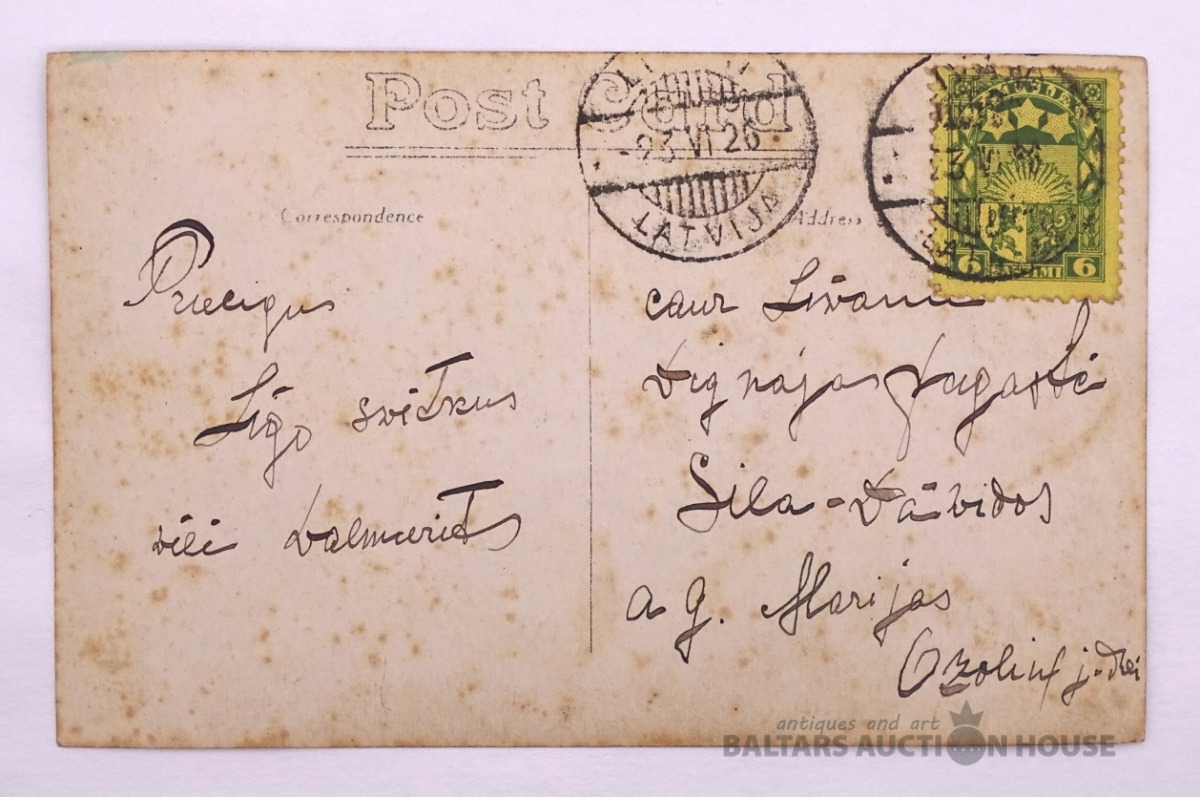 Post Card
-23 VI 26
LATVIJA
Correspondence
Address
6 SANTIMI 6
Priecigus
Līgo svētkus
vēlē
caur Līvani
Dignājas pagastē
Sila-Dāvidos
a g. Marijas
Ozoliņ j-dzei
antiques and art
BALTARS AUCTION HOUSE